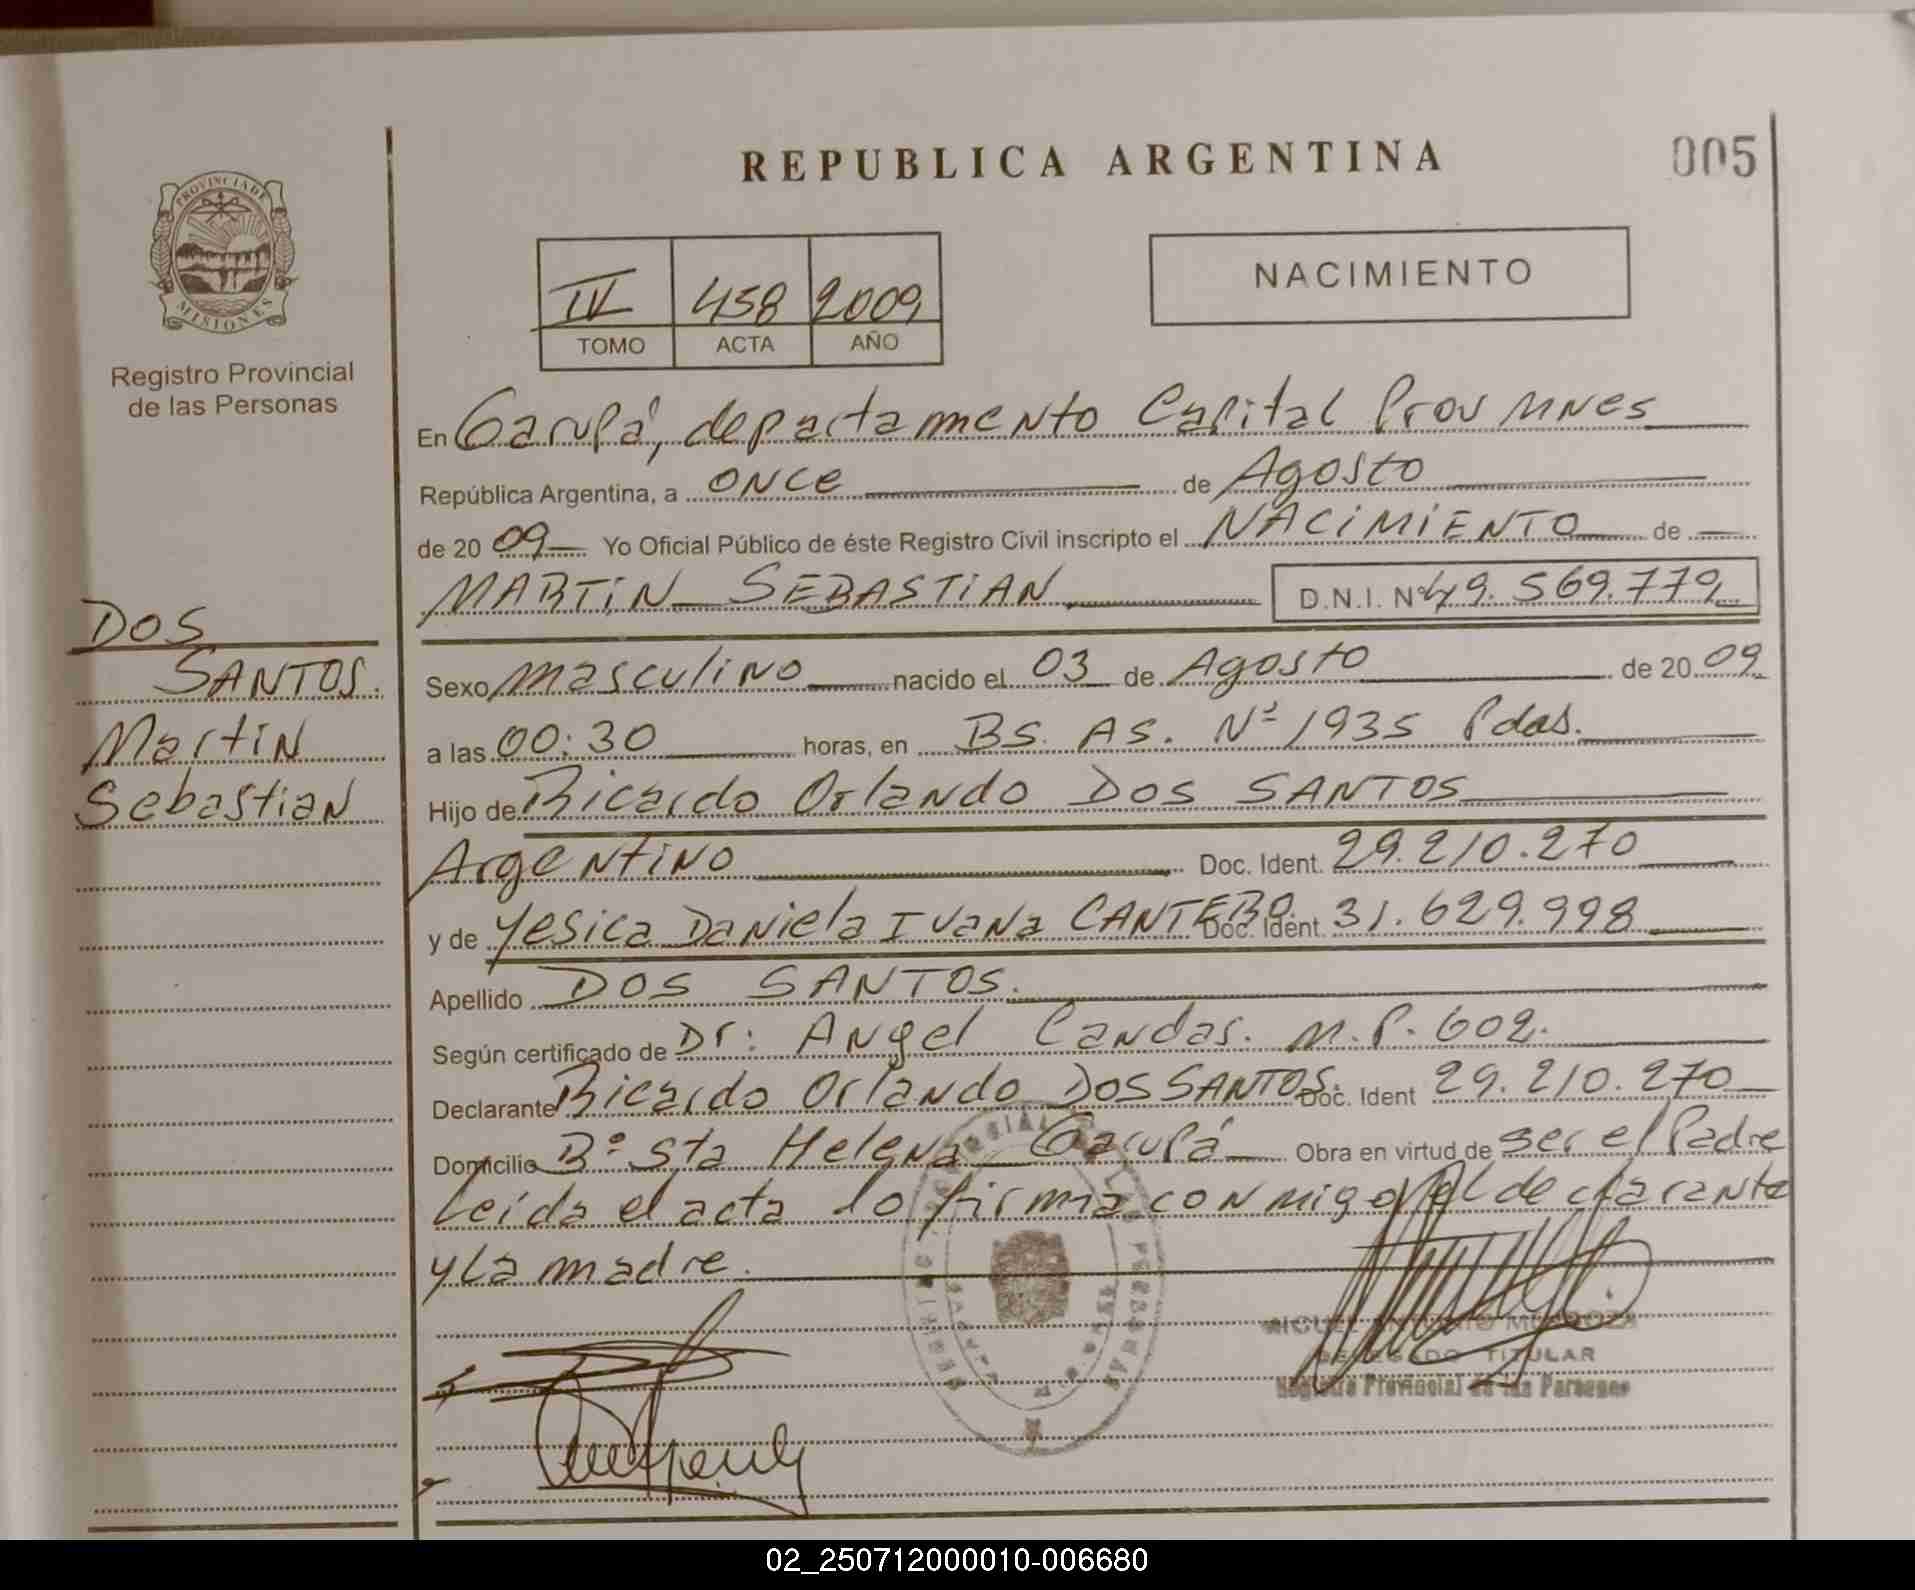 REPUBLICA ARGENTINA
005
PROVINCIA DE
MISIONES
Registro Provincial
de las Personas
IV 458 2009
TOMO ACTA AÑO
NACIMIENTO
En Garupá, departamento Capital Prov Mnes
República Argentina, a once de Agosto
de 20 09 Yo Oficial Público de éste Registro Civil inscripto el NACIMIENTO de
MARTIN SEBASTIAN D.N.I. Nº 49.569.779
DOS
SANTOS.
Martin
Sebastian
Sexo masculino nacido el 03 de Agosto de 20 09
a las 00:30 horas, en Bs. As. Nº 1935 Pdas.
Hijo de Ricardo Orlando DOS SANTOS
Argentino Doc. Ident. 29.210.270
y de Yesica Daniela Ivana CANTERO. Doc. Ident. 31.629.998
Apellido DOS SANTOS.
Según certificado de Dr: Angel Candas. M.P. 602.
Declarante Ricardo Orlando DOS SANTOS. Doc. Ident 29.210.270
Domicilio Bº Sta Helena Garupá Obra en virtud de ser el Padre
Leída el acta lo firma conmigo el declarante
y la madre.
MIGUEL ANTONIO
DELEGADO TITULAR
Registro Provincial de las Personas
02_250712000010-006680